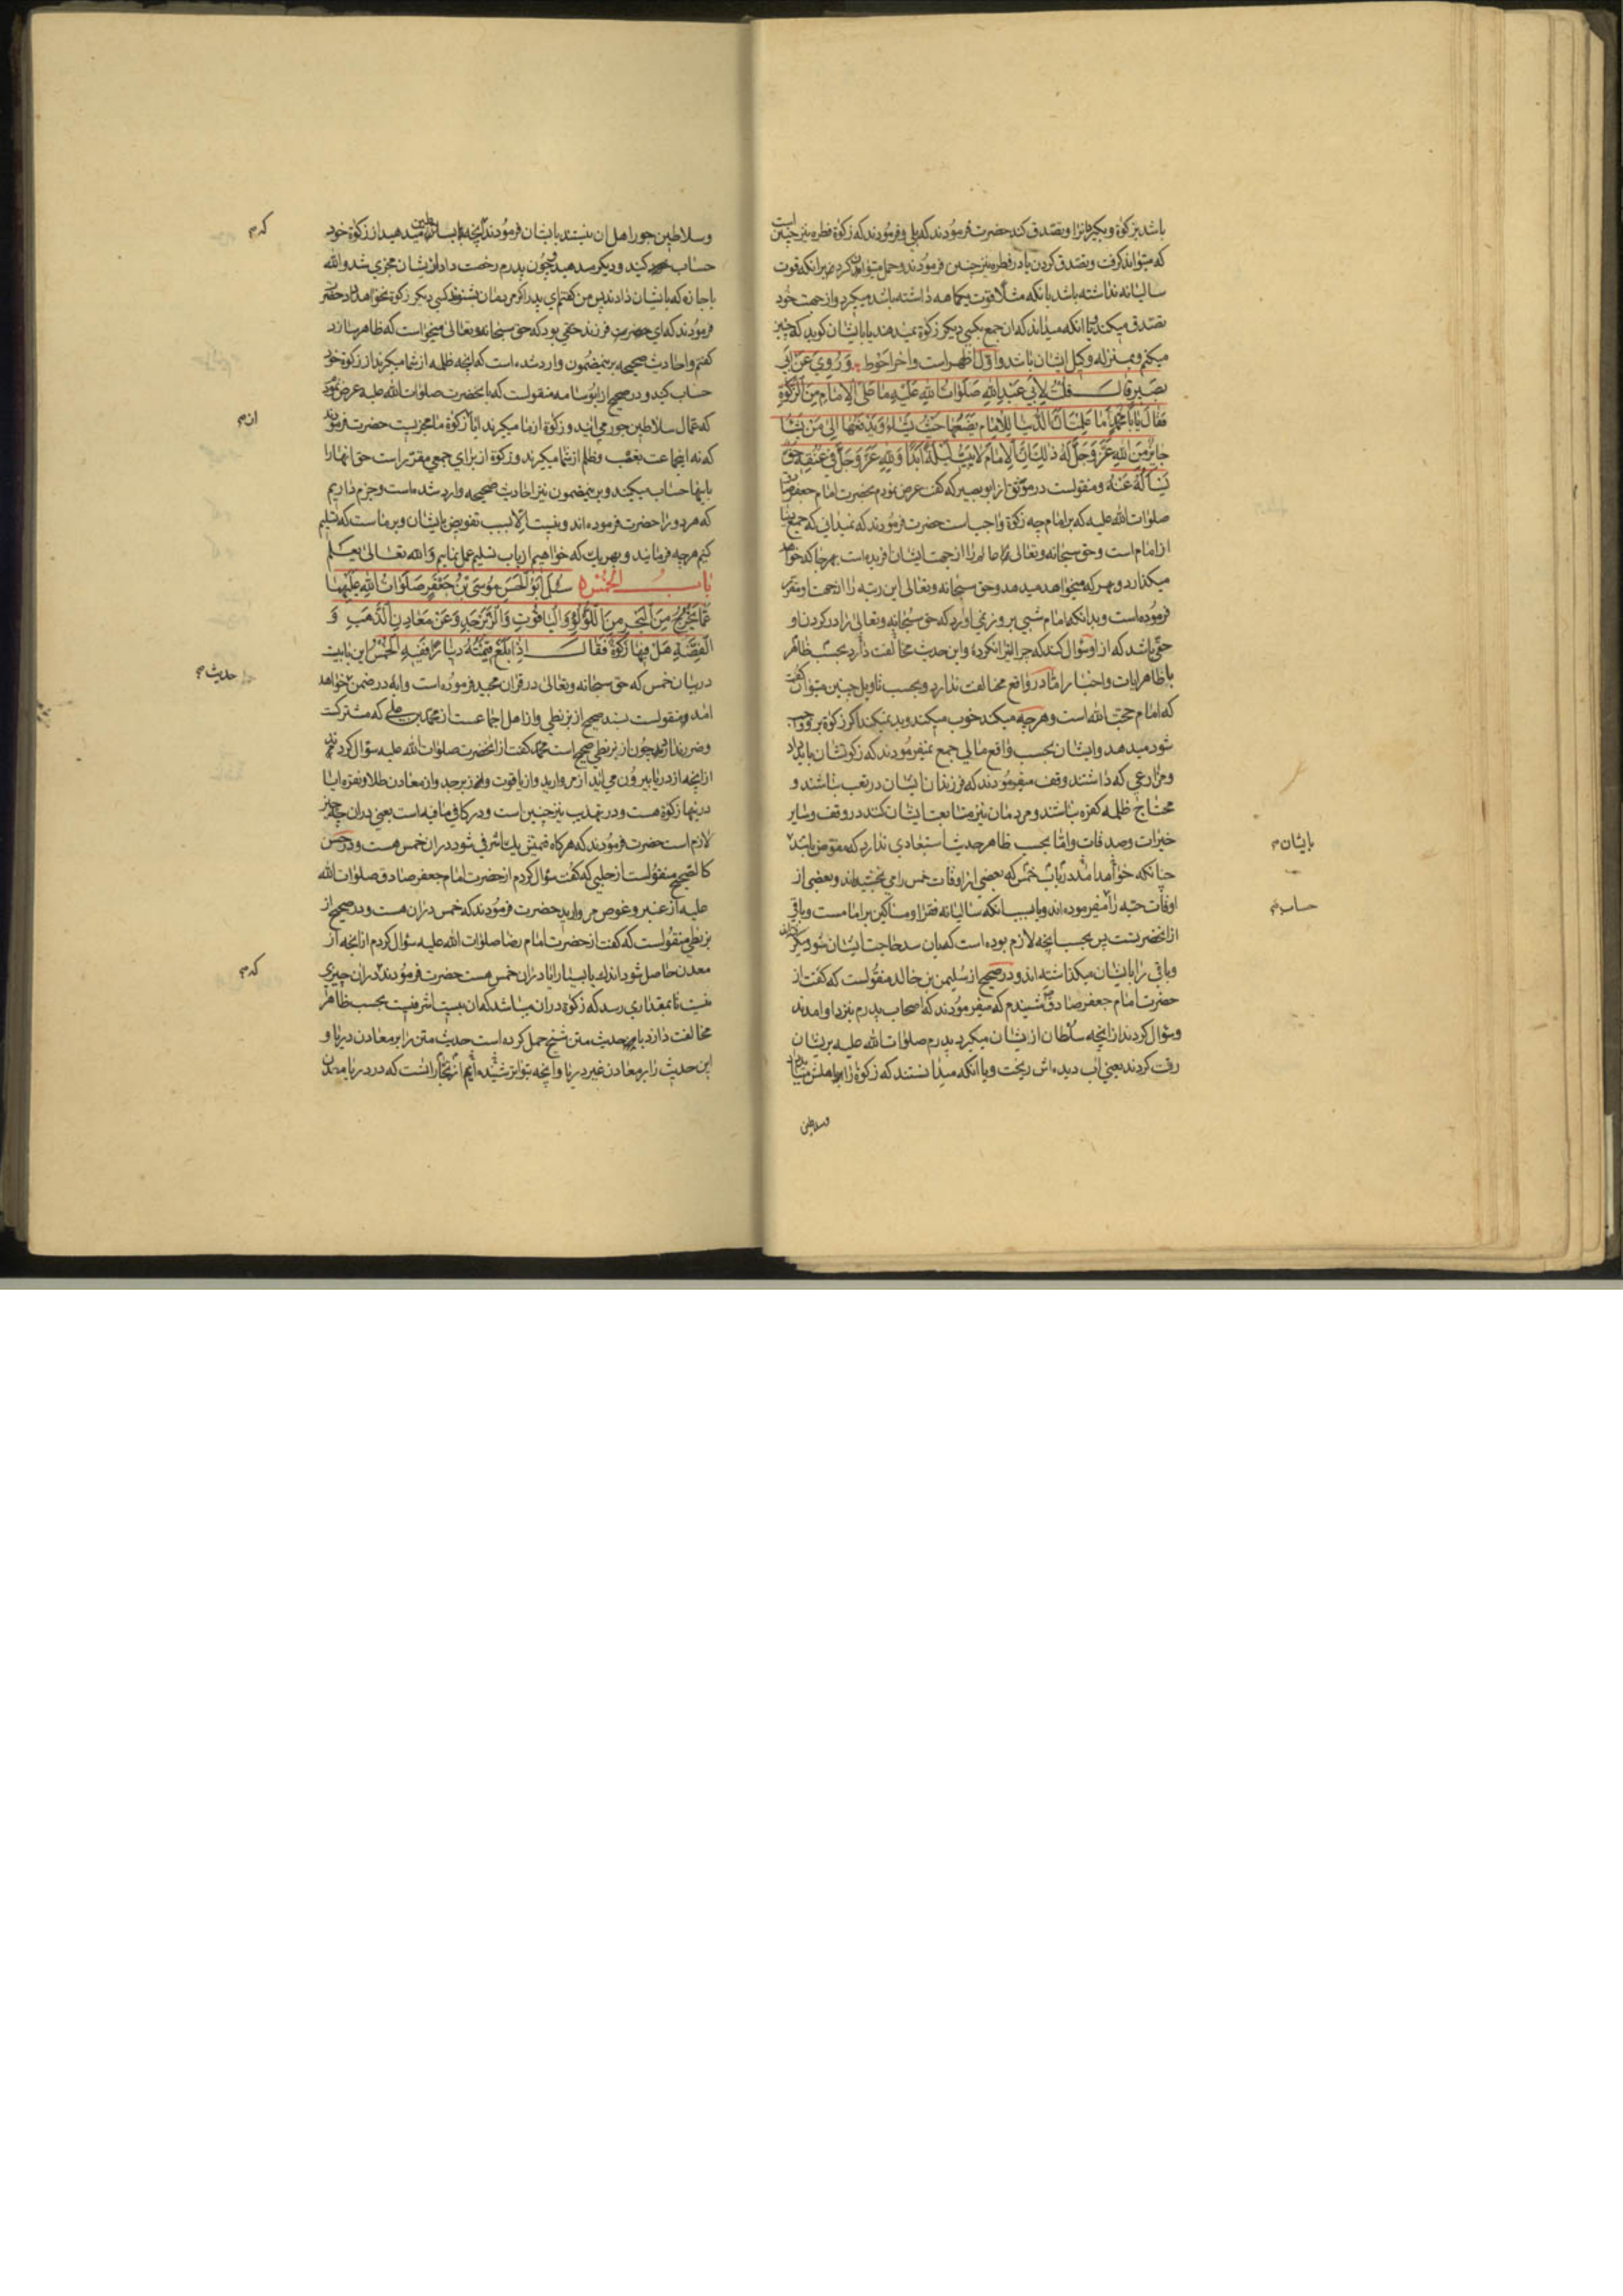 باشد بزکوة و بکیرد انرا و تصدق کند حضرت فرمودند که بلی و فرمودند که زکوة فطره نیز چنین است
که میتواند کرفت و تصدق کردن یا در فطره نیز چنین فرمودند و حمل میتوان کرد بر انکه قوت
سالیانه نداشته باشد یا انکه مثلا قوت یکماهه داشته باشد میکیرد و از جهت خود
تصدق میکند و یا انکه میداند که ان جمع بکسی دیکر زکوة نمیدهند یا بایشان کوید که چنین
میکنم و بمنزله وکیل ایشان باشد و اول اظهر است و اخر احوط وَرُوِيَ عَنْ أَبِي
بَصِيرٍ قَالَ قُلْتُ لِأَبِي عَبْدِ اللهِ صَلَوَاتُ اللهِ عَلَيْهِ مَا عَلَى الْإِمَامِ مِنَ الزَّكٰوةِ
فَقَالَ يَا بَا مُحَمَّدٍ أَمَا عَلِمْتَ أَنَّ الدُّنْيَا لِلْإِمَامِ يَضَعُهَا حَيْثُ يَشَاءُ وَيَدْفَعُهَا إِلَى مَنْ يَشَاءُ
جَايِزٌ مِنَ اللهِ عَزَّ وَجَلَّ لَهُ ذٰلِكَ إِنَّ الْإِمَامَ لَا يَبِيتُ لَيْلَةً أَبَدًا وَلِلّٰهِ عَزَّ وَجَلَّ فِي عُنُقِهِ حَقٌّ
يَسْأَلُهُ عَنْهُ و منقولست در موثق از ابو بصیر که کفت عرض نمودم بحضرت امام جعفر صادق
صلوات الله علیه که بر امام چه زکوة واجب است حضرت فرمودند که نمیدانی که جمیع دنیا
از امام است و حق سبحانه و تعالی عالم را از جهت ایشان افریده است هر جا که خواهد
میکذارد و بهر که میخواهد میدهد و حق سبحانه و تعالی این رتبه را از جهت او مقرر
فرموده است و بدانکه امام شبی بروز نمی اورد که حق سبحانه و تعالی را در کردن او
حقی باشد که از او سؤال کند که چرا انرا نکردۀ و این حدیث مخالفت دارد بحسب ظاهر
با ظاهر ایات و اخبار اما در واقع مخالفت ندارد و بحسب تاویل چنین میتوان کفت
که امام حجت الله است و هرچه میکند خوب میکند و بد نمیکند اکر زکوة برو واجب
شود میدهد و ایشان بحسب واقع مالی جمع نمیفرمودند که زکوتشان باید داد
و مزارعی که داشتند وقف میفرمودند که فرزندان ایشان در تعب نباشند و
محتاج ظلمه کفره نباشند و مردمان نیز متابعت ایشان کنند در وقف و سایر
خیرات و صدقات و اما بحسب ظاهر حدیث استبعادی ندارد که مفوض باشد
چنانکه خواهد امد در باب خمس که بعضی از اوقات خمس را می بخشیده اند و بعضی از
اوقات حبه را میفرموده اند و یا بسبب انکه سالیانه فقرا و مساکین بر امامست و باقی
از انحضرتست پس بحسب انچه لازم بوده است که بان سد حاجت ایشان شود میکرفته اند
و باقی را بایشان میکذاشته اند و در صحیح از سلیمن بن خالد منقولست که کفت از
حضرت امام جعفر صادق شنیدم که میفرمودند که اصحاب پدرم بنزد او امدند
و سؤال کردند از انچه سلطان از ایشان میکیرد پدرم صلوات الله علیه بر ایشان
رقت کردند یعنی اب دیده اش ریخت و با انکه میدانستند که زکوة را باهلش میباید داد
وسلاطین
بایشان م
حساب م
و سلاطین جور اهل ان نیستند بایشان فرمودند انچه بسلاطین میدهید از زکوة خود
حساب کنید و دیکر مدهید و چون پدرم رخصت داد از ایشان مجزی شد والله
با اجازه که بایشان دادند پس من کفتم ای پدر اکر مردمان بشنوند کسی دیکر زکوة نخواهد داد حضرت
فرمودند که ای فرزند حقی بود که حق سبحانه و تعالی میخواست که ظاهر سازد
کفتم و احادیث صحیحه برینمضمون وارد شده است که انچه ظلمه از شما میکیرند از زکوة خود
حساب کنید و در صحیح از ابو اسامه منقولست که بانحضرت صلوات الله علیه عرض نمود
که عمال سلاطین جور می ایند و زکوة از ما میکیرند ایا زکوة ما مجزیست حضرت فرمودند
که نه اینجماعت بغصب و ظلم از شما میکیرند و زکوة از برای جمعی مقرر است حق انها را
باینها حساب میکنید و برینمضمون نیز احادیث صحیحه وارد شده است و جزم داریم
که هر دو را حضرت فرموده اند و نیست الا بسبب تفویض بایشان و بر ماست که تسلیم
کنیم هرچه فرمایند و بهر یک که خواهیم از باب تسلیم عمل نماییم وَاللهُ تَعَالٰى يَعْلَمُ
بَابُ الْخُمْسِ سُئِلَ أَبُو الْحَسَنِ مُوسَى بْنُ جَعْفَرٍ صَلَوَاتُ اللهِ عَلَيْهِمَا
عَمَّا يَخْرُجُ مِنَ الْبَحْرِ مِنَ اللُّؤْلُؤِ وَالْيَاقُوتِ وَالزَّبَرْجَدِ وَعَنْ مَعَادِنِ الذَّهَبِ وَ
الْفِضَّةِ هَلْ فِيهَا زَكٰوةٌ فَقَالَ إِذَا بَلَغَ قِيمَتُهُ دِينَارًا فَفِيهِ الْخُمْسُ این بابیست
در بیان خمس که حق سبحانه و تعالی در قران مجید فرموده است و ایه در ضمن خواهد
امد و منقولست بسند صحیح از بزنطی و از اهل اجماعست از محمد بن علی که مشترکست
و ضرر ندارد چون از بزنطی صحیح است محمد کفت از انحضرت صلوات الله علیه سؤال کردم
از انچه از دریا بیرون می اید از مروارید و از یاقوت و از زبرجد و از معادن طلا و نقره ایا
درینها زکوة هست و در تهذیب نیز چنین است و در کافی ما فیه است یعنی دران چه چیز
لازم است حضرت فرمودند که هرکاه قیمتش یک اشرفی شود دران خمس هست و در حسن
کالصحیح منقولست از حلبی که کفت سؤال کردم از حضرت امام جعفر صادق صلوات الله
علیه از عنبر و غوص مروارید حضرت فرمودند که خمس دران هست و در صحیح از
بزنطی منقولست که کفت از حضرت امام رضا صلوات الله علیه سؤال کردم از انچه از
معدن حاصل شود اندک یا بسیار ایا دران خمس هست حضرت فرمودند دران چیزی
نیست تا بمقداری رسد که زکوة دران میباشد که ان بیست اشرفیست بحسب ظاهر
مخالفت دارد با حدیث متن شیخ حمل کرده است حدیث متن را بر معادن دریا و
این حدیث را بر معادن غیر دریا و انچه بتواتر شنیده ایم از تجار انست که در دریا معدن
کدم
ازم
حدیث م
کدم